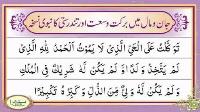 جان و مال میں برکت وسعت اور تندرستی کا نبوی نسخہ
تَوَكَّلْتُ عَلَى الْحَيِّ الَّذِي لَا يَمُوتُ الْحَمْدُ لِلّٰهِ الَّذِي
لَمْ يَتَّخِذْ وَلَدًا وَّ لَمْ يَكُنْ لَّهٗ شَرِيْكٌ فِي الْمُلْكِ
وَ لَمْ يَكُنْ لَّهٗ وَلِيٌّ مِّنَ الذُّلِّ وَ كَبِّرْهُ تَكْبِيْرًا